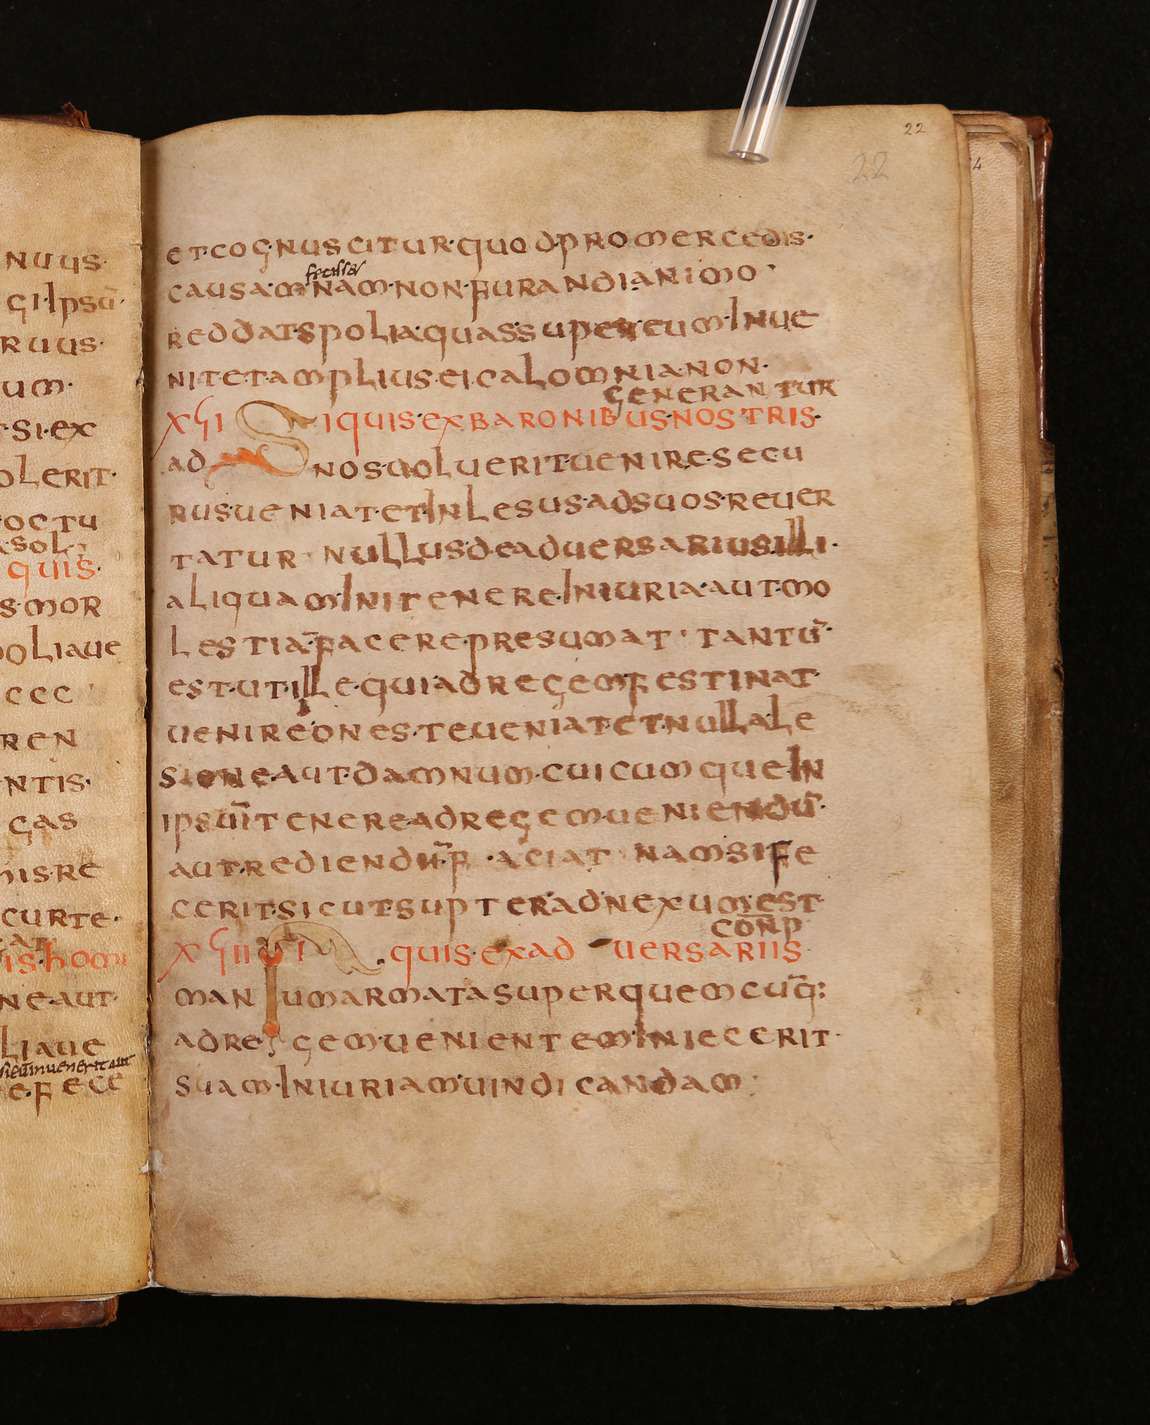 22
22
4
NUUS·
GI·Ipsū·
RUUS·
UM·
SI·EX
OLERIT·
OCTU
SOL
QUIS·
S·MOR
POLIAUE
CCC
REN
NTIS·
GAS
HIS·RE
CURTE·
IS·HOMI
NE·AUT·
LIAUE
E·FECE
ETCOGNUSCITUR·QUODPROMERCEDIS·
fecisset
CAUSAM·NAM·NON·FURANDIANIMO·
REDDATSPOLIA·QUASSUPEREUM·INUE
NIT·ETAMPLIUS·EICALOMNIA·NON·
GENERANTUR
XVI SIQUIS·EXBARONIBUS·NOSTRIS·
AD NOS·UOLUERIT·UENIRE·SECU
RUS·UENIAT·ETINLESUS·ADSUOS·REUER
TATUR·NULLUSDEADUERSARIUSILLI·
ALIQUAMINITENERE·INIURIA·AUT·MO
LESTIĀ·FACERE·PRESUMAT·TANTŪ·
EST·UT·ILLE·QUIADREGEMFESTINAT·
UENIREONES·TEUENIAT·ETNULLALE
SIONE·AUT·DAMNUM·CUICUMQUE·IN
IPSUĪTENERE·ADREGEM·UENIENDŪ·
AUT·REDIENDŪ·F·ACIAT NAMSIFE
CERIT·SICUT·SUPTERADNEXUMEST·
CON̄P
XVII SI QUIS·EXAD UERSARIIS
MANUMARMATASUPERQUEMCUQ̄:
ADREGEMUENIENTEMINIECERIT·
SUAM·INIURIAM·UINDICANDAM·